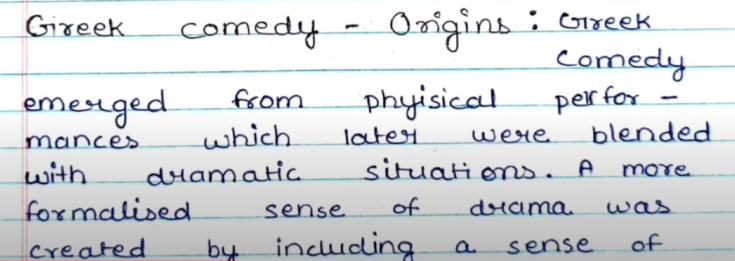 Greek comedy - Origins : Greek
Comedy
emerged from phyisical perfor -
mances which later were blended
with dramatic situations. A more
formalised sense of drama was
created by including a sense of